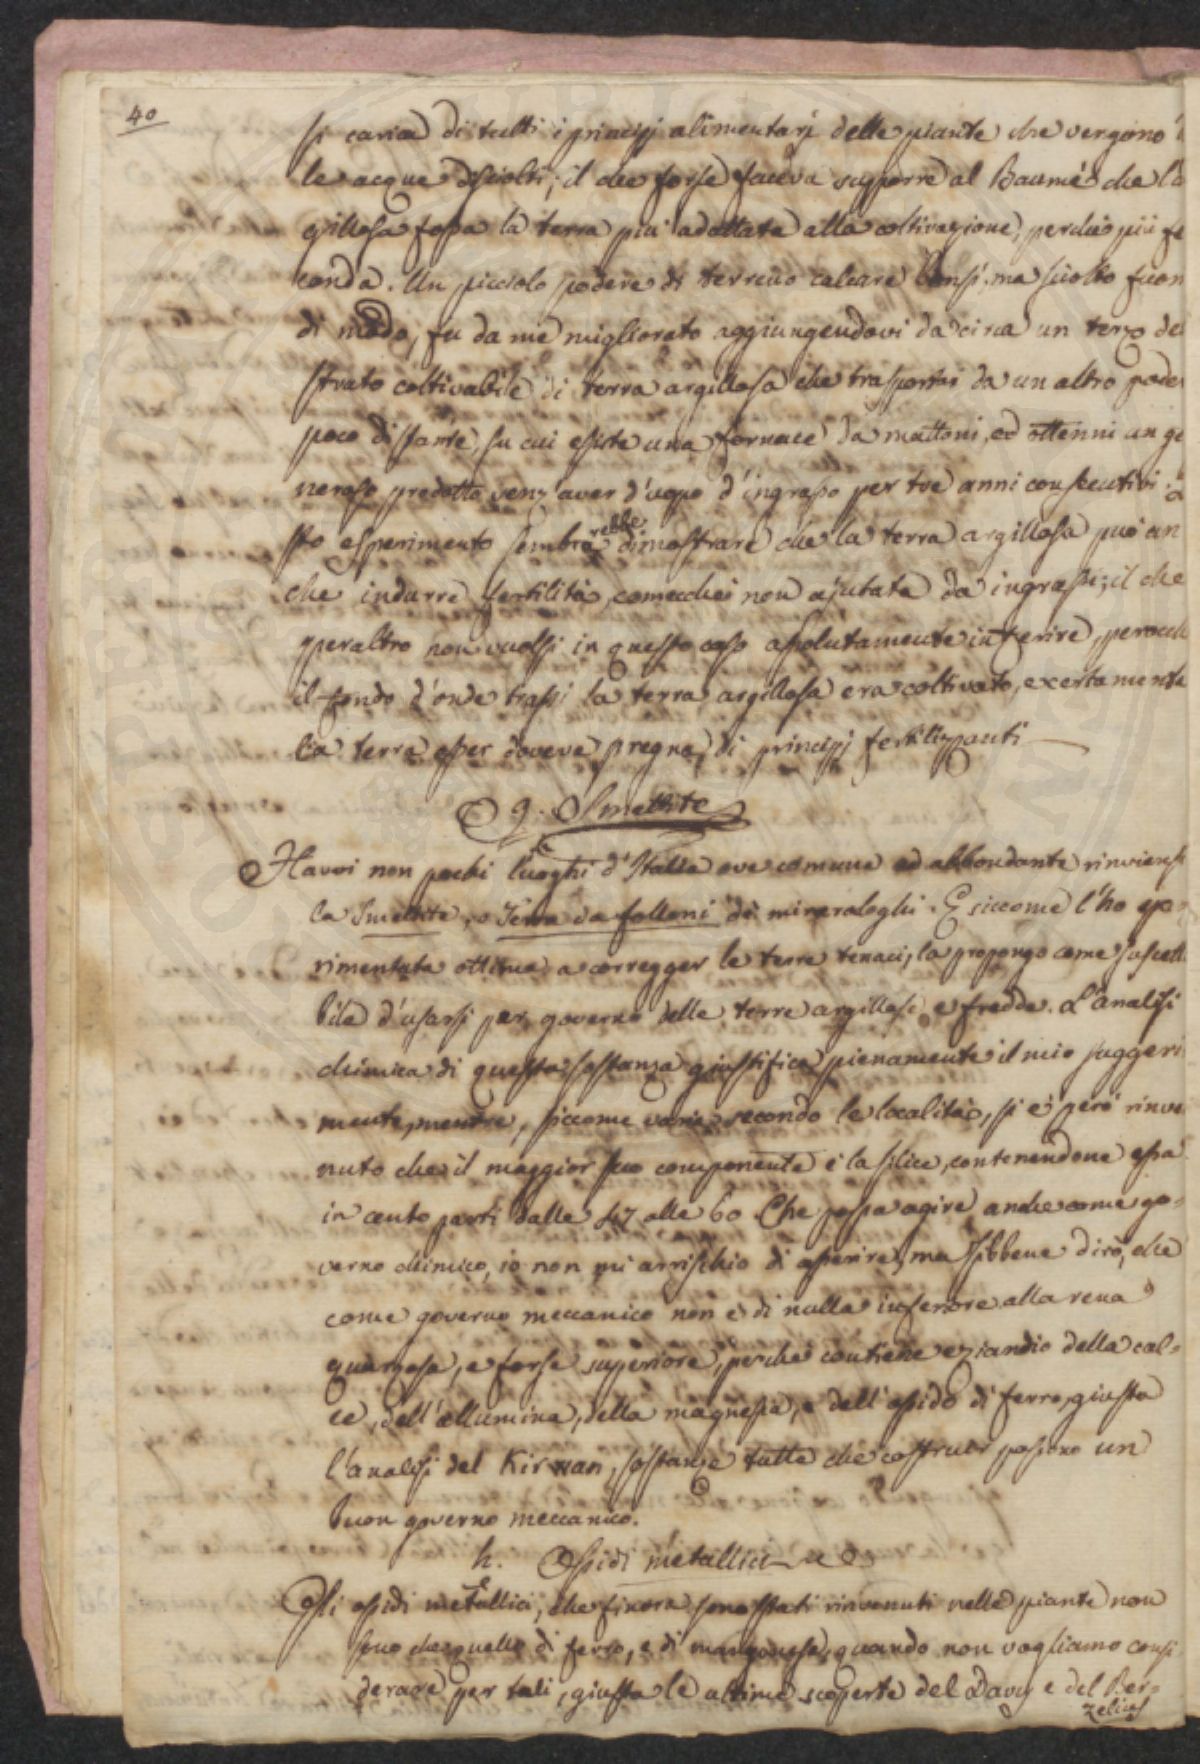 40
si carica di tutti i principj alimentarj delle piante che vengono
le acque disciolti; il che forse faceva supporre al Baumé che l'a
gillosa fossa la terra più adattata alla coltivazione, perchè più fe
conda. Un picciolo podere di terreno calcare bensì, ma sciolto fuor
di modo, fu da me migliorato aggiungendovi da circa un terzo del
strato coltivabile di terra argillosa che trasportai da un altro pode
poco distante, su cui esiste una fornace da mattoni, ed ottenni un ge
neroso prodotto senz'aver d'uopo d'ingrasso per tre anni consecutivi.
sto esperimento sembrerebbe dimostrare che la terra argillosa può an
che indurre fertilità, comecchè non ajutata da ingrassi; il che
peraltro non vuolsi in questo caso assolutamente inferire, perocchè
il fondo d'onde trassi la terra argillosa era coltivato, e certamente
la terra esser doveva pregna di principj fertilizzanti
g. Smettite
Havvi non pochi luoghi d'Italia ove comune ed abbondante rinviensi
la Smettite, o Terra da folloni de' mineraloghi. E siccome l'ho spe
rimentata ottima a corregger le terre tenaci, la propongo come suscetti
bile d'usarsi per governo delle terre argillose e fredde. L'analisi
chimica di questa sostanza giustifica pienamente il mio suggeri
mento, mentre, siccome varia secondo le località, si è però rinve
nuto che il maggior suo componente è la silice, contenendone essa
in cento parti dalle 47 alle 60. Che possa agire anche come go=
verno chimico, io non mi arrischio di asserire, ma sibbene dirò, che
come governo meccanico non è di nulla inferiore alla rena
quarzosa, e forse superiore, perchè contiene eziandio della cal=
ce, dell'allumina, della magnesia, e dell'ossido di ferro, giusta
l'analisi del Kirwan, sostanze tutte che costruir possono un
buon governo meccanico.
h. Ossidi metallici
Gli ossidi metallici, che finora sono stati rinvenuti nelle piante non
sono che quello di ferro, e di manganese, quando non vogliamo consi
derare per tali, giusta le ultime scoperte del Davy e del Ber=
zelius